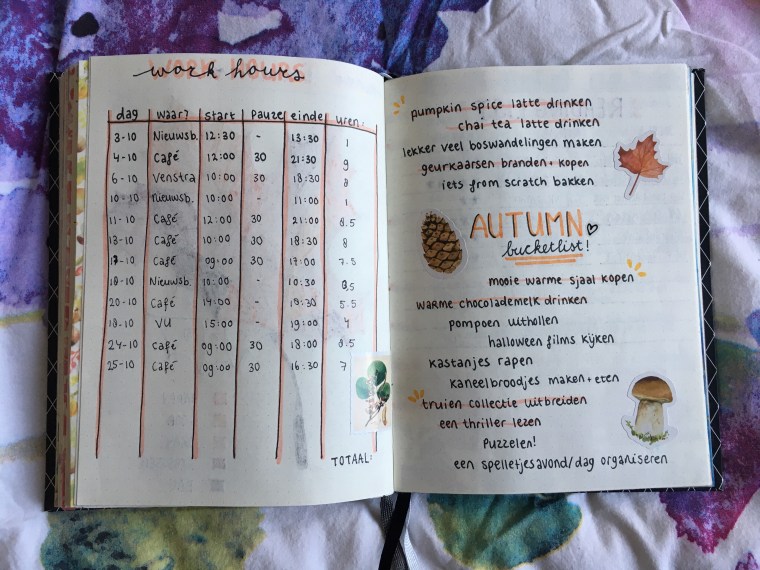 work hours
dag waar? start pauze einde uren:
3-10 Nieuwsb. 12:30 - 13:30 1
4-10 Café 12:00 30 21:30 9
6-10 Venstra 10:00 30 18:30 8
10-10 Nieuwsb. 10:00 - 11:00 1
11-10 Café 12:00 30 21:00 8.5
13-10 Café 10:00 30 18:30 8
17-10 Café 09:00 30 17:00 7.5
18-10 Nieuwsb. 10:00 - 10:30 0,5
20-10 Café 14:00 - 19:30 5.5
18-10 VU 15:00 - 19:00 4
24-10 Café 09:00 30 18:00 8.5
25-10 Café 09:00 30 16:30 7
TOTAAL:
pumpkin spice latte drinken
chai tea latte drinken
lekker veel boswandelingen maken
geurkaarsen branden + kopen
iets from scratch bakken
AUTUMN
bucketlist!
mooie warme sjaal kopen
warme chocolademelk drinken
pompoen uithollen
halloween films kijken
kastanjes rapen
kaneelbroodjes maken + eten
truien collectie uitbreiden
een thriller lezen
Puzzelen!
een spelletjesavond/dag organiseren